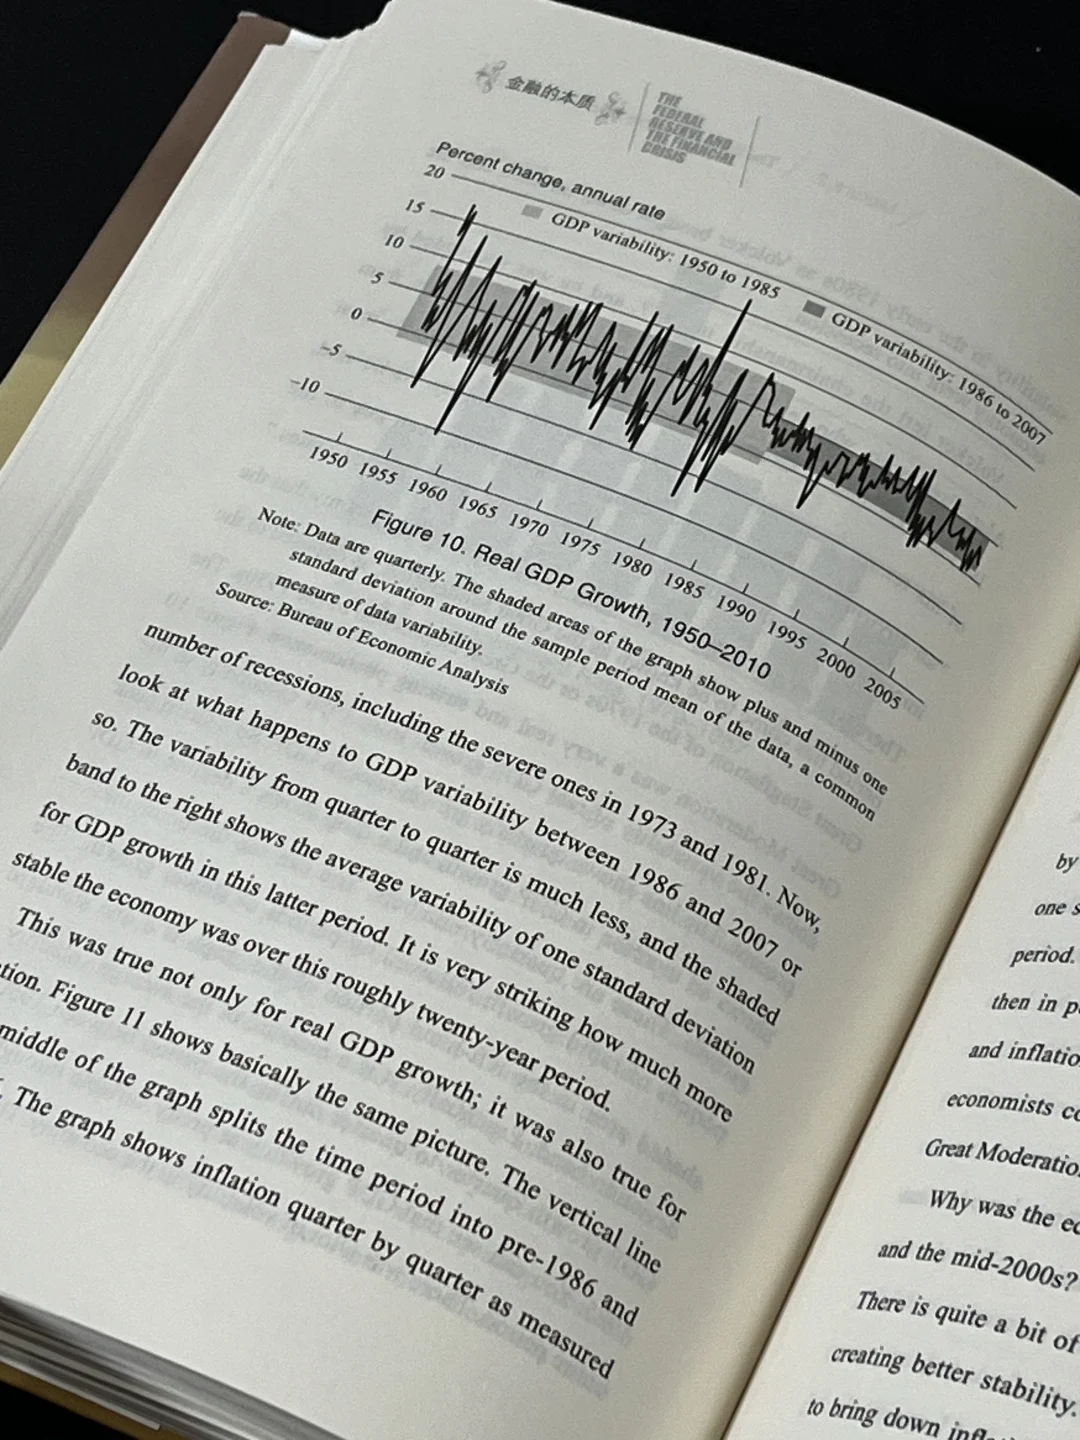 金融的本质
THE
FEDERAL
RESERVE AND
THE FINANCIAL
CRISIS
Percent change, annual rate
20
15
10
5
0
–5
–10
GDP variability: 1950 to 1985
GDP variability: 1986 to 2007
1950 1955 1960 1965 1970 1975 1980 1985 1990 1995 2000 2005
Figure 10. Real GDP Growth, 1950–2010
Note: Data are quarterly. The shaded areas of the graph show plus and minus one
standard deviation around the sample period mean of the data, a common
measure of data variability.
Source: Bureau of Economic Analysis
number of recessions, including the severe ones in 1973 and 1981. Now,
look at what happens to GDP variability between 1986 and 2007 or
so. The variability from quarter to quarter is much less, and the shaded
band to the right shows the average variability of one standard deviation
for GDP growth in this latter period. It is very striking how much more
stable the economy was over this roughly twenty-year period.
This was true not only for real GDP growth; it was also true for
tion. Figure 11 shows basically the same picture. The vertical line
middle of the graph splits the time period into pre-1986 and
. The graph shows inflation quarter by quarter as measured
by
one s
period.
then in p
and inflatio
economists co
Great Moderatio
Why was the ec
and the mid-2000s?
There is quite a bit of
creating better stability.
to bring down infl